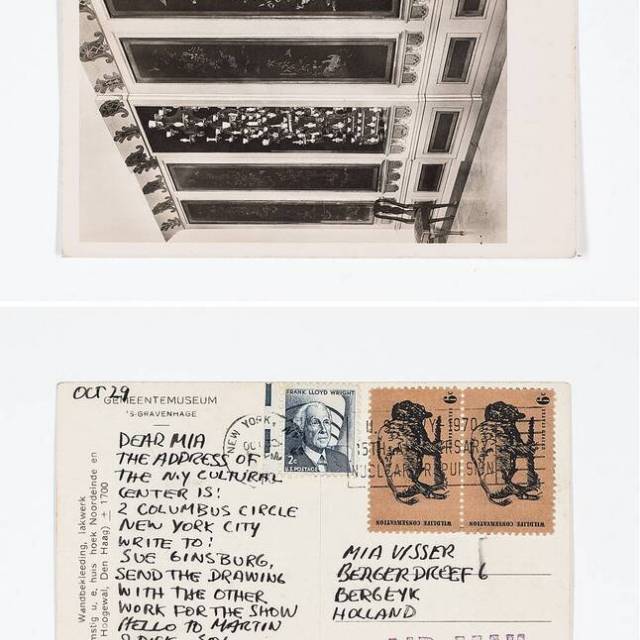 OCT 29
GEMEENTEMUSEUM
'S-GRAVENHAGE
DEAR MIA
THE ADDRESS OF
THE N.Y CULTURAL
CENTER IS:
2 COLUMBUS CIRCLE
NEW YORK CITY
WRITE TO:
SUE GINSBURG,
SEND THE DRAWING
WITH THE OTHER
WORK FOR THE SHOW
HELLO TO MARTIN
Wandbekleeding, lakwerk
u. e. huis hoek Noordeinde en
Hoogewal, Den Haag) ± 1700
NEW YORK, N.
FRANK LLOYD WRIGHT
2c
U.S. POSTAGE
U. Y 1970
NUCLEAR PROPULSION
6c
WILDLIFE CONSERVATION
6c
WILDLIFE CONSERVATION
MIA VISSER
BERGERDREEF 6
BERGEYK
HOLLAND